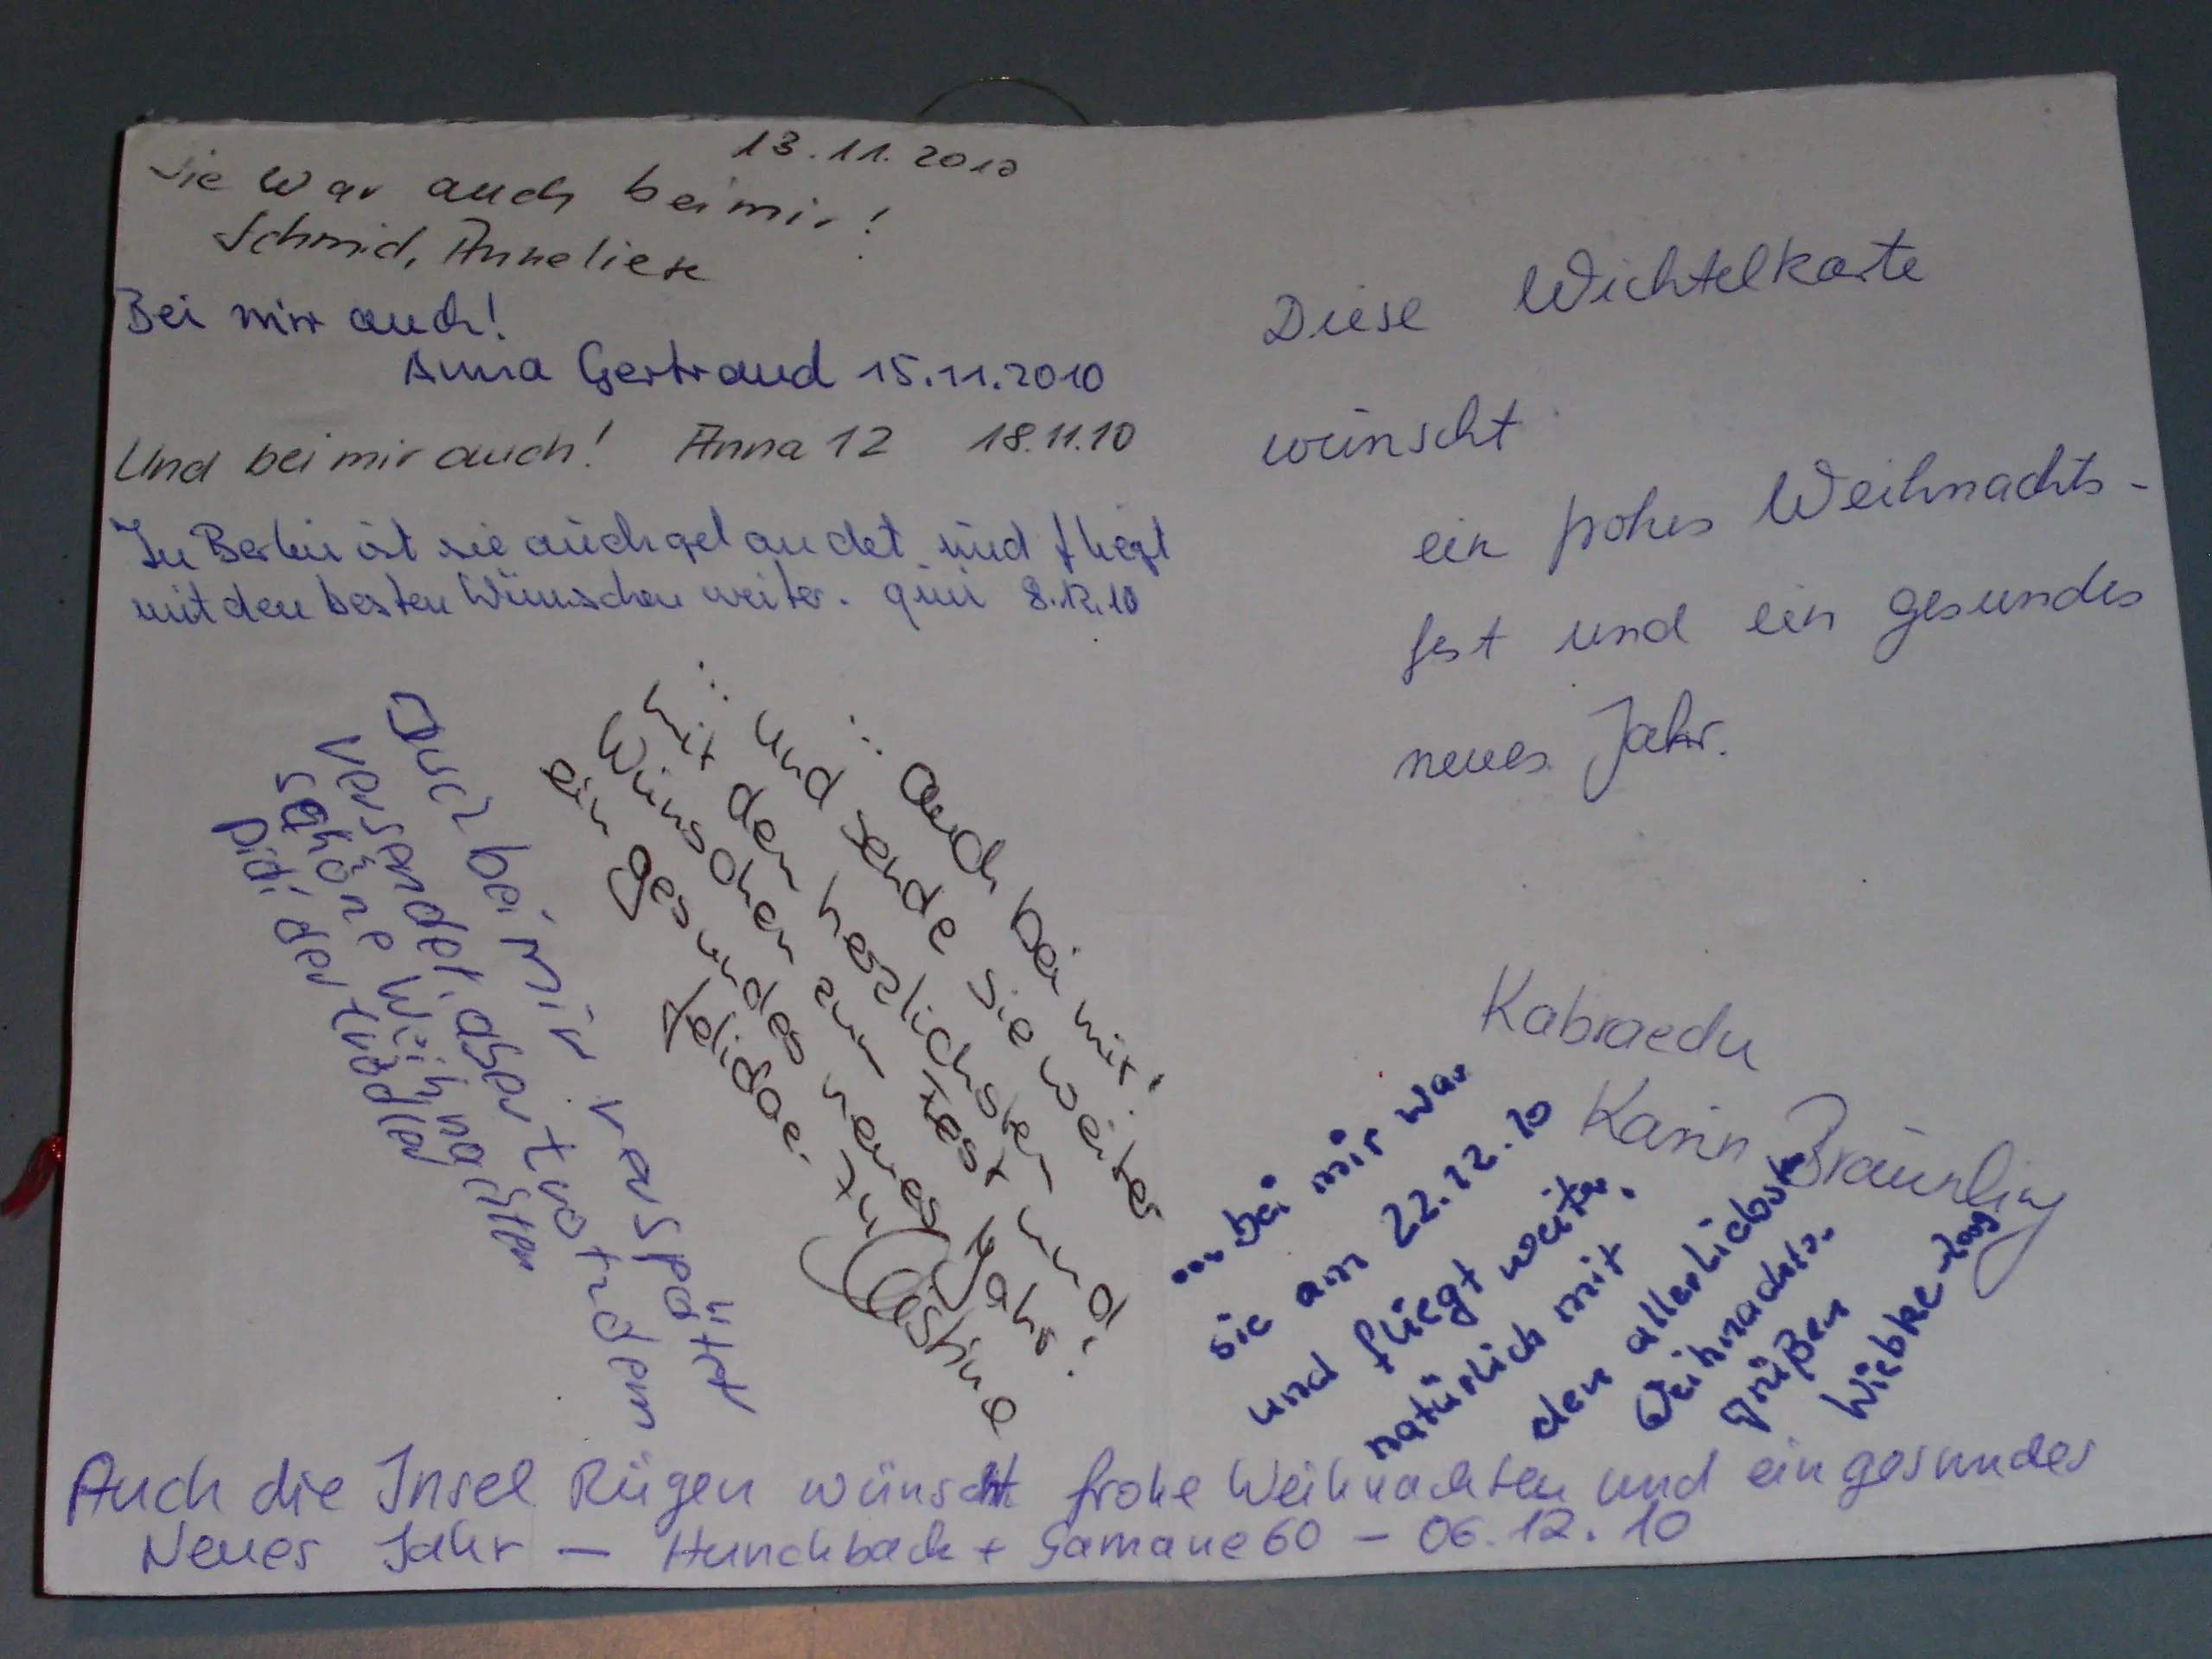 13.11.2010
Sie war auch bei mir!
Schmid, Anneliese
Bei mir auch!
Anna Gertraud 15.11.2010
Und bei mir auch! Anna 12 18.11.10
In Berlin ist sie auch gelandet und fliegt
mit den besten Wünschen weiter. 8.12.10
Auch bei mir verspätet
und
versendet, aber
schöne Weihnachten
... auch bei mir.
... und sende sie weiter
mit den herzlichsten
Wünschen zum Fest und
ein gesundes neues Jahr.
Felidae.
Diese Wichtelkarte
wünscht
ein frohes Weihnachts-
fest und ein gesundes
neues Jahr.
Kabraedu
Karin Bräunling
... bei mir war
sie am 22.12.10
und fliegt weiter.
natürlich mit
den allerliebsten
Weihnachts-
grüßen
Wiebke
Auch die Insel Rügen wünscht frohe Weihnachten und ein gesundes
Neues Jahr — Hunchback + Samane60 — 06.12.10